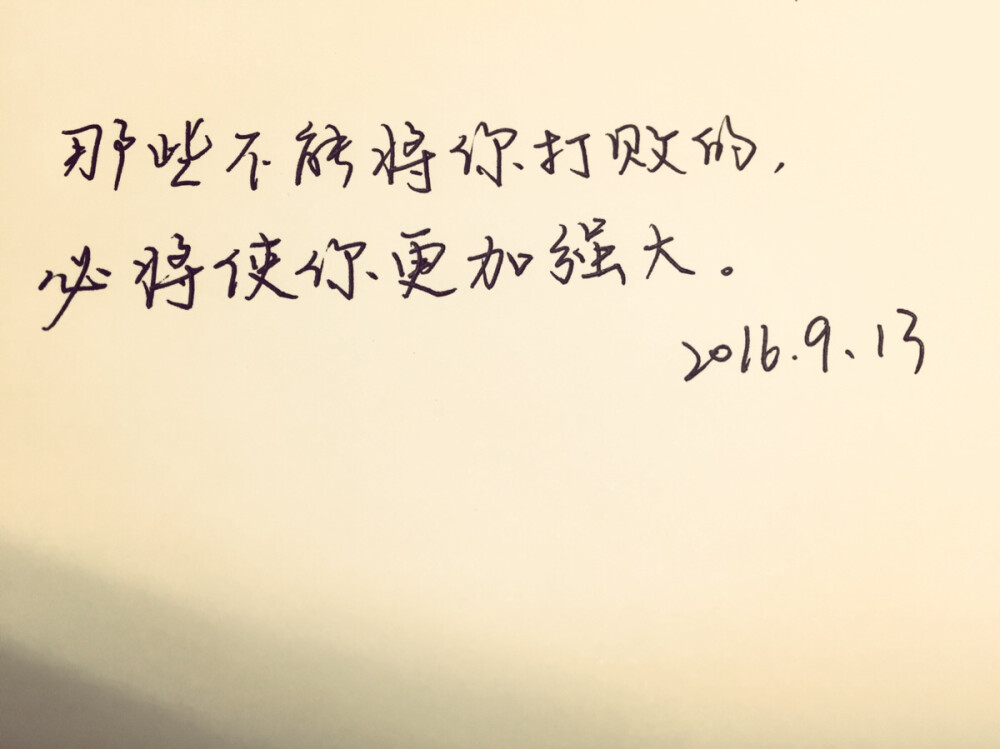 那些不能将你打败的,
必将使你更加强大。
2016.9.13